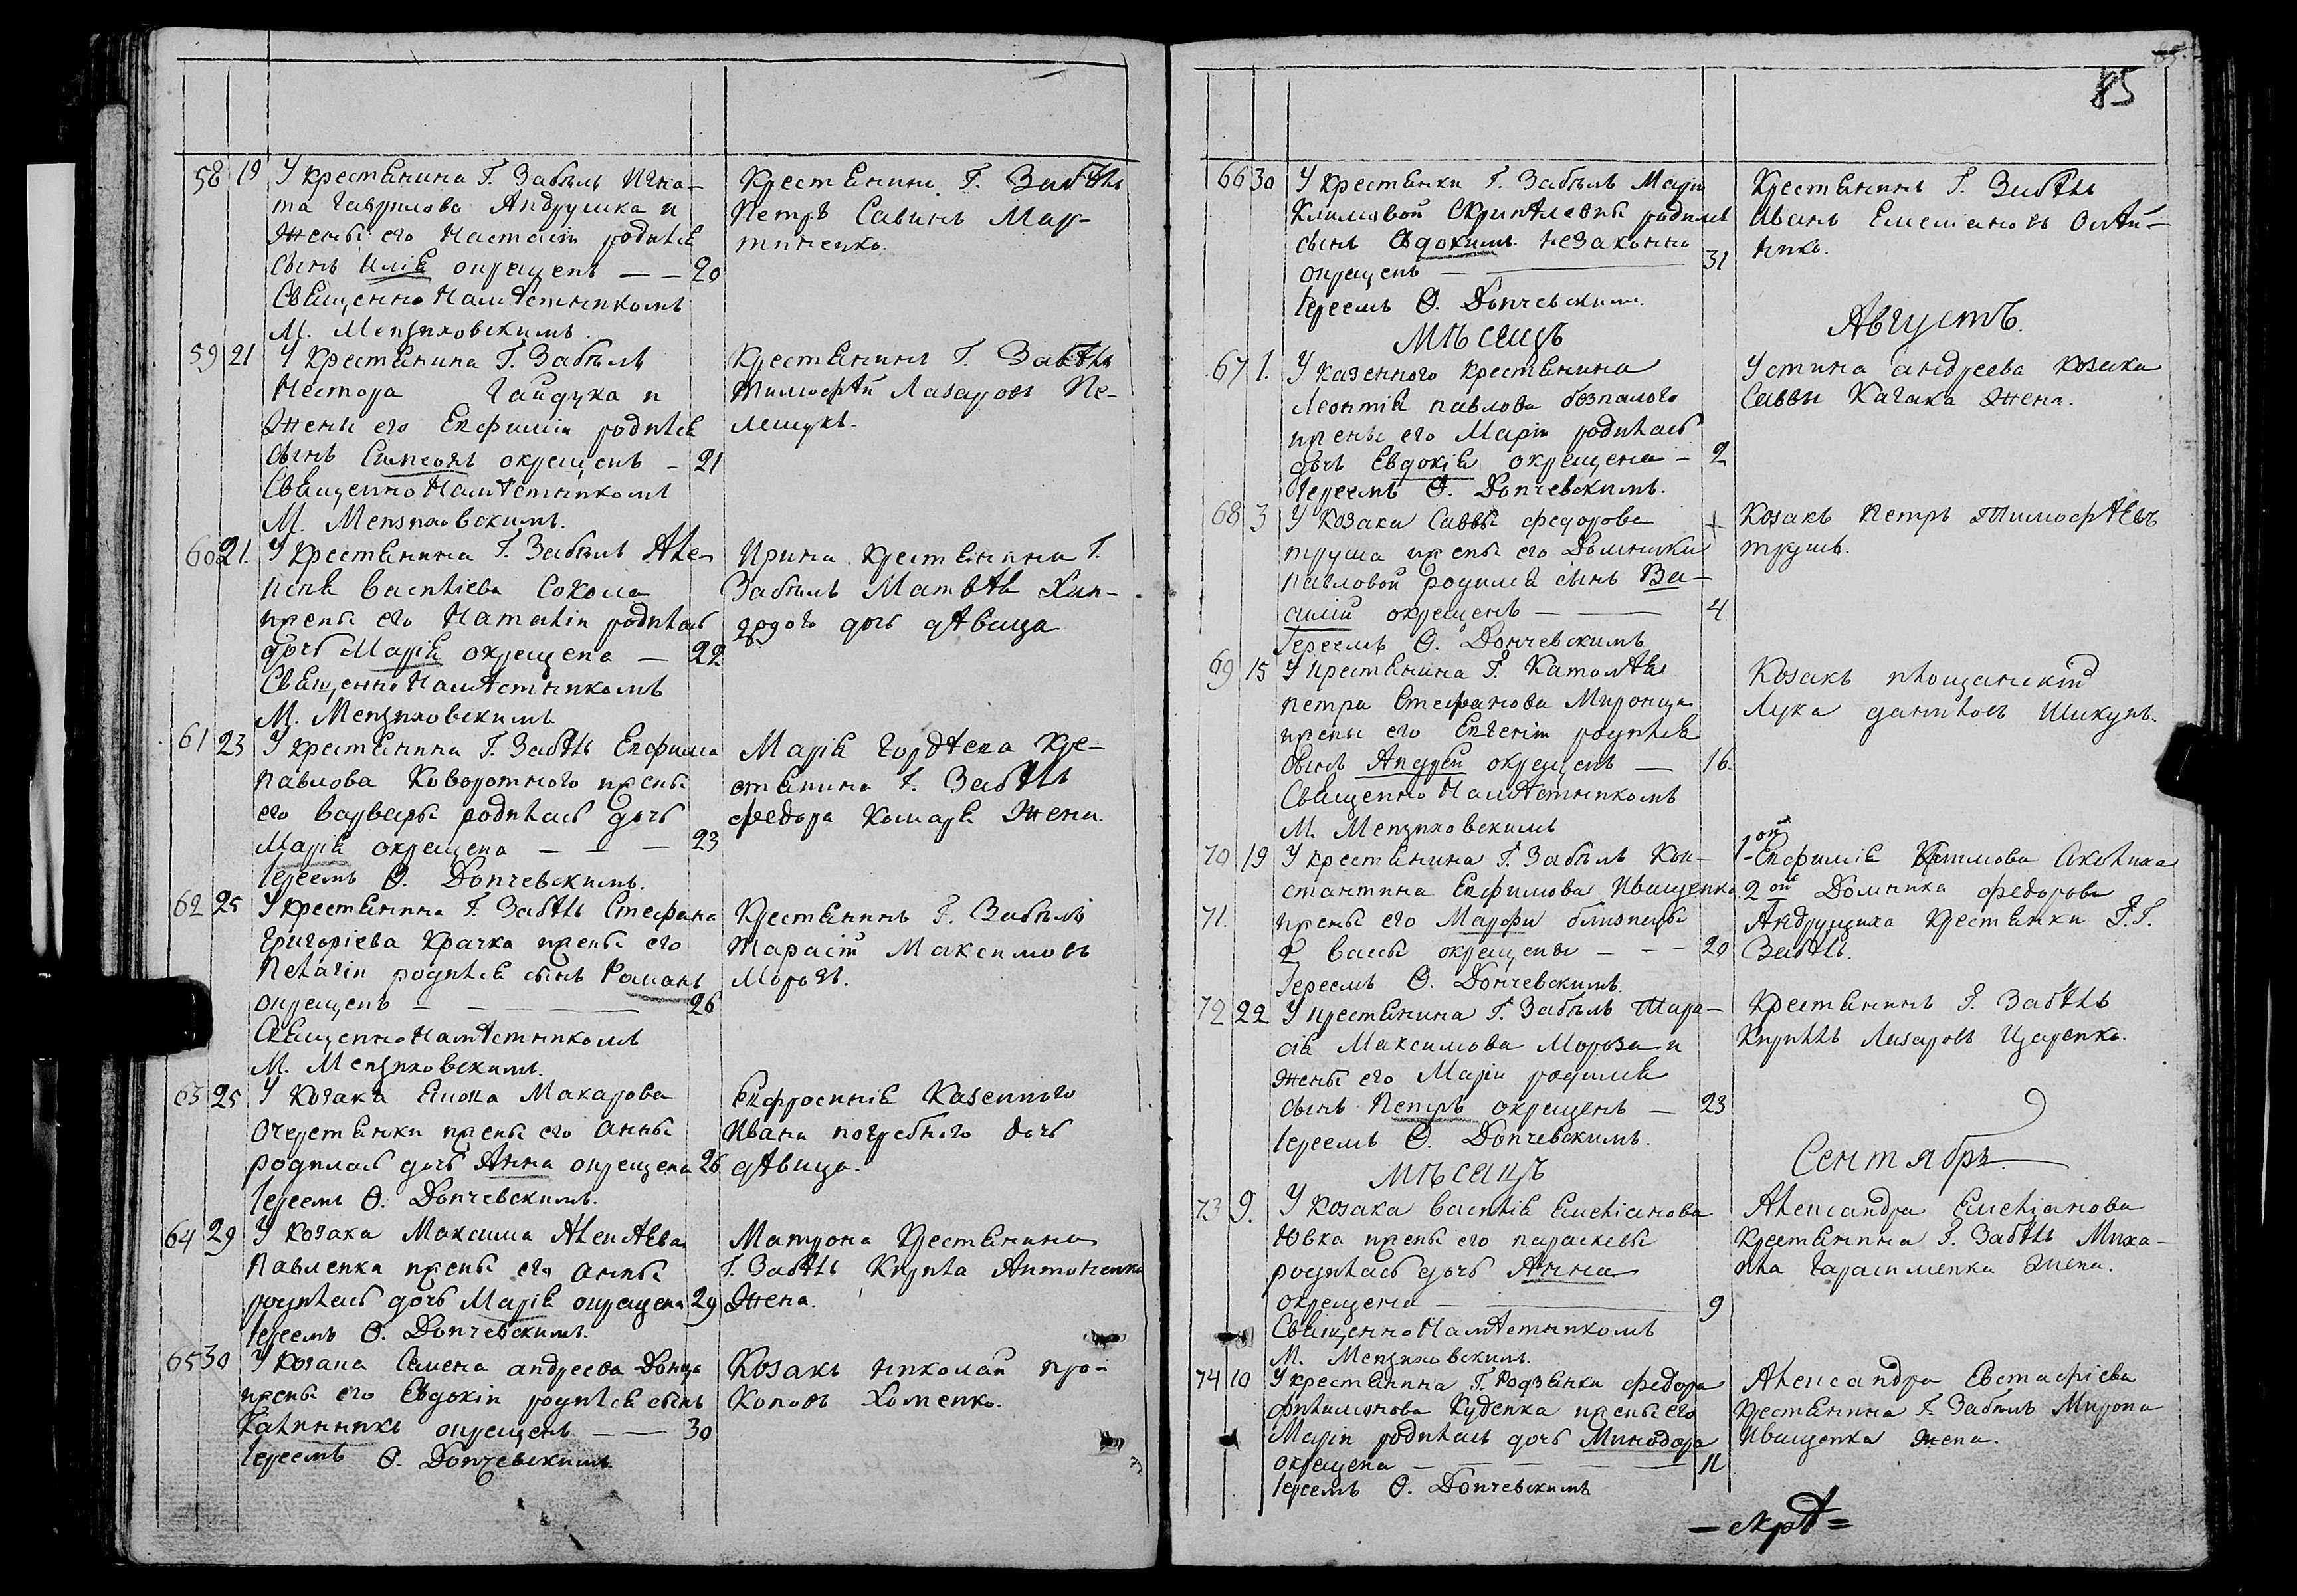 58 19 У крестянина Г. Забѣлъ Игна-
та Гаврилова Андрушка и
жены его Настасіи родился
сынъ Илія окрещенъ — — 20
Священно Намѣстникомъ
М. Мензиховскимъ.
Крестянинъ Г. Забѣлъ
Петръ Савинъ Мар-
тиненко.
59 21 У крестянина Г. Забѣлъ
Нестора Гайдука и
жены его Евфиміи родился
сынъ Симеонъ окрещенъ — 21
Священно Намѣстникомъ
М. Мензиховскимъ.
Крестянинъ Г. Забѣлъ
Тимофѣй Лазаровъ Пе-
лешукъ.
60 21. У крестянина Г. Забѣлъ
Василіева Сокола
жены его Наталіи родилась
дочь Марія окрещена — 22
Священно Намѣстникомъ
М. Мензиховскимъ
Ирина крестянина Г.
Забѣлъ Матвѣя
дочь дѣвица
61 23 У крестянина Г. Забѣлъ Евфима
Павлова Коворотного жены
его Варвары родилась дочь
Марія окрещена — — — 23
Іереемъ Ѳ. Дончевскимъ.
Марія Гордѣева кре-
стянина Г. Забѣлъ
Федора Комаря жена.
62 25 У крестянина Г. Забѣлъ Стефана
Григоріева Крачка жены его
Пелагіи родился сынъ Романъ
окрещенъ — — — 26
Священно Намѣстникомъ
М. Мензиховскимъ.
Крестянинъ Г. Забѣлъ
Тарасій Максимовъ
Морозъ.
63 25 У козака Макарова
Очеретянки жены его Анны
родилась дочь Анна окрещена 26
Іереемъ Ѳ. Дончевскимъ.
Евфросинія Казенного
Ивана Погребного дочь
дѣвица.
64 29 У козака Максима Алексѣева
Павленка жены его Анны
родилась дочь Марія окрещена 29
Іереемъ Ѳ. Дончевскимъ.
Матрона крестянина
Г. Забѣлъ Кирила Антоненка
жена.
65 30 У козака Семена Андреева Донца
жены его Евдокіи родился сынъ
Калиникъ окрещенъ — — 30
Іереемъ Ѳ. Дончевскимъ
Козакъ Николай Про-
коповъ Хоменко.
85
66 30 У крестянки Г. Забѣлъ Маріи
Климовой родился
сынъ Евдокимъ незаконно
окрещенъ — — 31
Іереемъ Ѳ. Дончевскимъ.
Крестянинъ Г. Забѣлъ
Иванъ Емеліановъ Олѣй-
никъ.
Мѣсяцъ Августъ.
67 1. У казенного крестянина
Леонтія Павлова Безпалого
жены его Маріи родилась
дочь Евдокія окрещена — 2
Іереемъ Ѳ. Дончевскимъ.
Устина Андреева козака
Саввы Качака жена.
68 3 У козака Саввы Федорова +
Труша жены его Домникіи
Павловой родился сынъ Ва-
силій окрещенъ — — 4
Іереемъ Ѳ. Дончевскимъ
Козакъ Петръ Тимофѣевъ
Трушъ.
69 15 У крестянина Г.
Петра Стефанова Миронца
жены его Евгеніи родился
сынъ Андрей окрещенъ — 16.
Священно Намѣстникомъ
М. Мензиховскимъ
Козакъ площанскій
Лука Даниловъ Шикунъ.
70 19 У крестянина Г. Забѣлъ Кон-
стантина Евфимова Иващенка
71. жены его Марфы близнецы
2 Вассы окрещены — — 20
Іереемъ Ѳ. Дончевскимъ.
1-ой Евфимія Климова
2ой Домника Федорова
Андрущиха крестянки Г.Г.
Забѣлъ.
72 22 У крестянина Г. Забѣлъ Тара-
сія Максимова Мороза и
жены его Маріи родился
сынъ Петръ окрещенъ — 23
Іереемъ Ѳ. Дончевскимъ.
Крестянинъ Г. Забѣлъ
Кирилъ Лазаровъ Царенко.
Мѣсяцъ Сентябрь.
73 9. У козака Василія Емеліанова
Ювка жены его Параскевы
родилась дочь Анна
окрещена — — 9
Священно Намѣстникомъ
М. Мензиховскимъ.
Александра Емеліанова
крестянина Г. Забѣлъ Миха-
ила Гарасименка жена.
74 10 У крестянина Г. Родзянки Федора
Филимонова Куденка жены его
Маріи родилась дочь Минодора
окрещена — — — — 11
Іереемъ Ѳ. Дончевскимъ
Александра Евстафіева
крестянина Г. Забѣлъ Мирона
Иващенка жена.